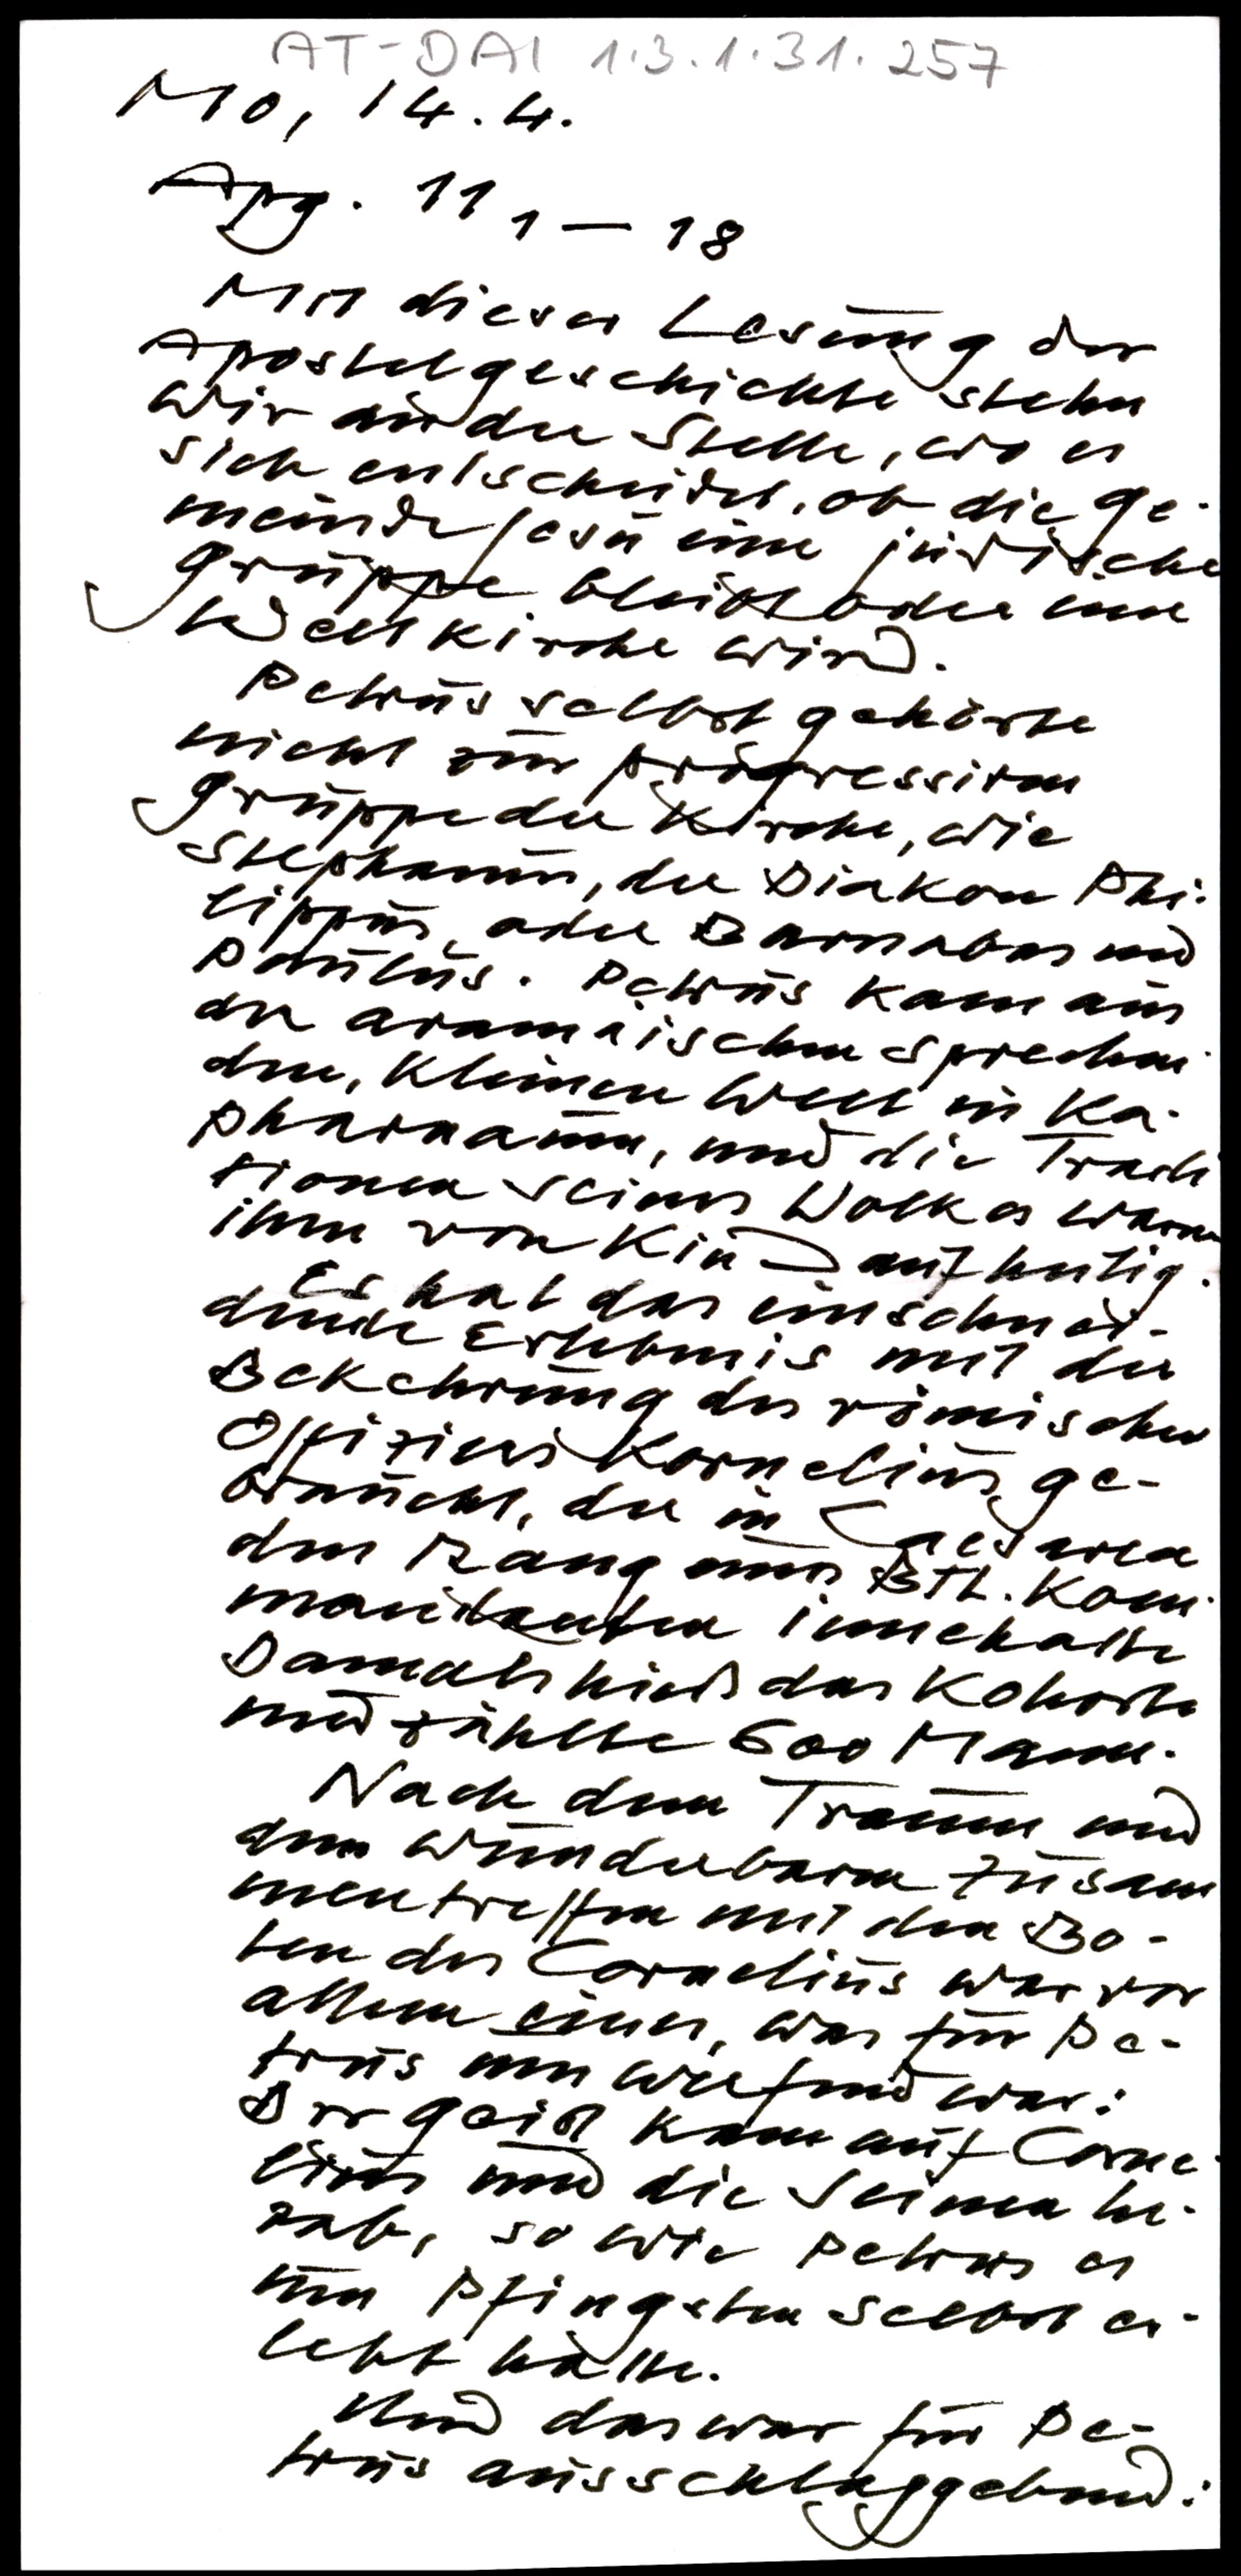 AT-DAI 1.3.1.31.257
Mo, 14.4.
Apg. 11 1-18
Mit dieser Lesung der
Apostelgeschichte stehn
wir an der Stelle, wo es
sich entscheidet, ob die Ge-
meinde Jesu eine jüdische
Gruppe bleibt oder eine
Weltkirche wird.
Petrus selbst gehörte
nicht zur progressiven
Gruppe der Kirche, wie
Stephanus, der Diakon Phi-
lippus, oder Barnabas und
Paulus. Petrus kam aus
der aramäischen sprechen-
den, kleinen Welt in Ka-
pharnaum, und die Tradi
tionen seines Volkes waren
ihm von Kind auf heilig.
Es hat das einschnei-
dende Erlebnis mit der
Bekehrung des römischen
Offiziers Kornelius ge-
braucht, der in Caesarea
den Rang eines Btl. Kom-
mandanten innehatte
Damals hieß das Kohorte
und zählte 600 Mann.
Nach dem Traum und
dem wunderbaren Zusam
mentreffen mit den Bo-
ten des Cornelius war vor
allem eines, was für Pe-
trus umwerfend war:
Der Geist kam auf Corne-
lius und die Seinen he-
rab, so wie Petrus es
zu Pfingsten selbst er-
lebt hatte.
Und das war für Pe-
trus ausschlaggebend: